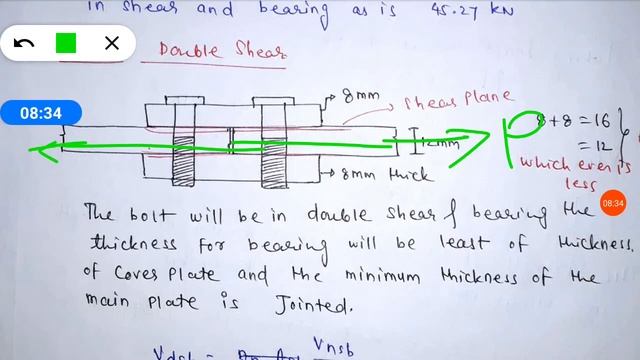 in shear and bearing as is 45.27 kN
Double Shear
08:34
8mm
Shear Plane
P
8+8 = 16
= 12
12mm
which ever is
less
8mm thick
08:34
The bolt will be in double shear & bearing the
thickness for bearing will be least of thickness.
of Cover Plate and the minimum thickness of the
main plate is Jointed.
Vdsb =
Vnsb